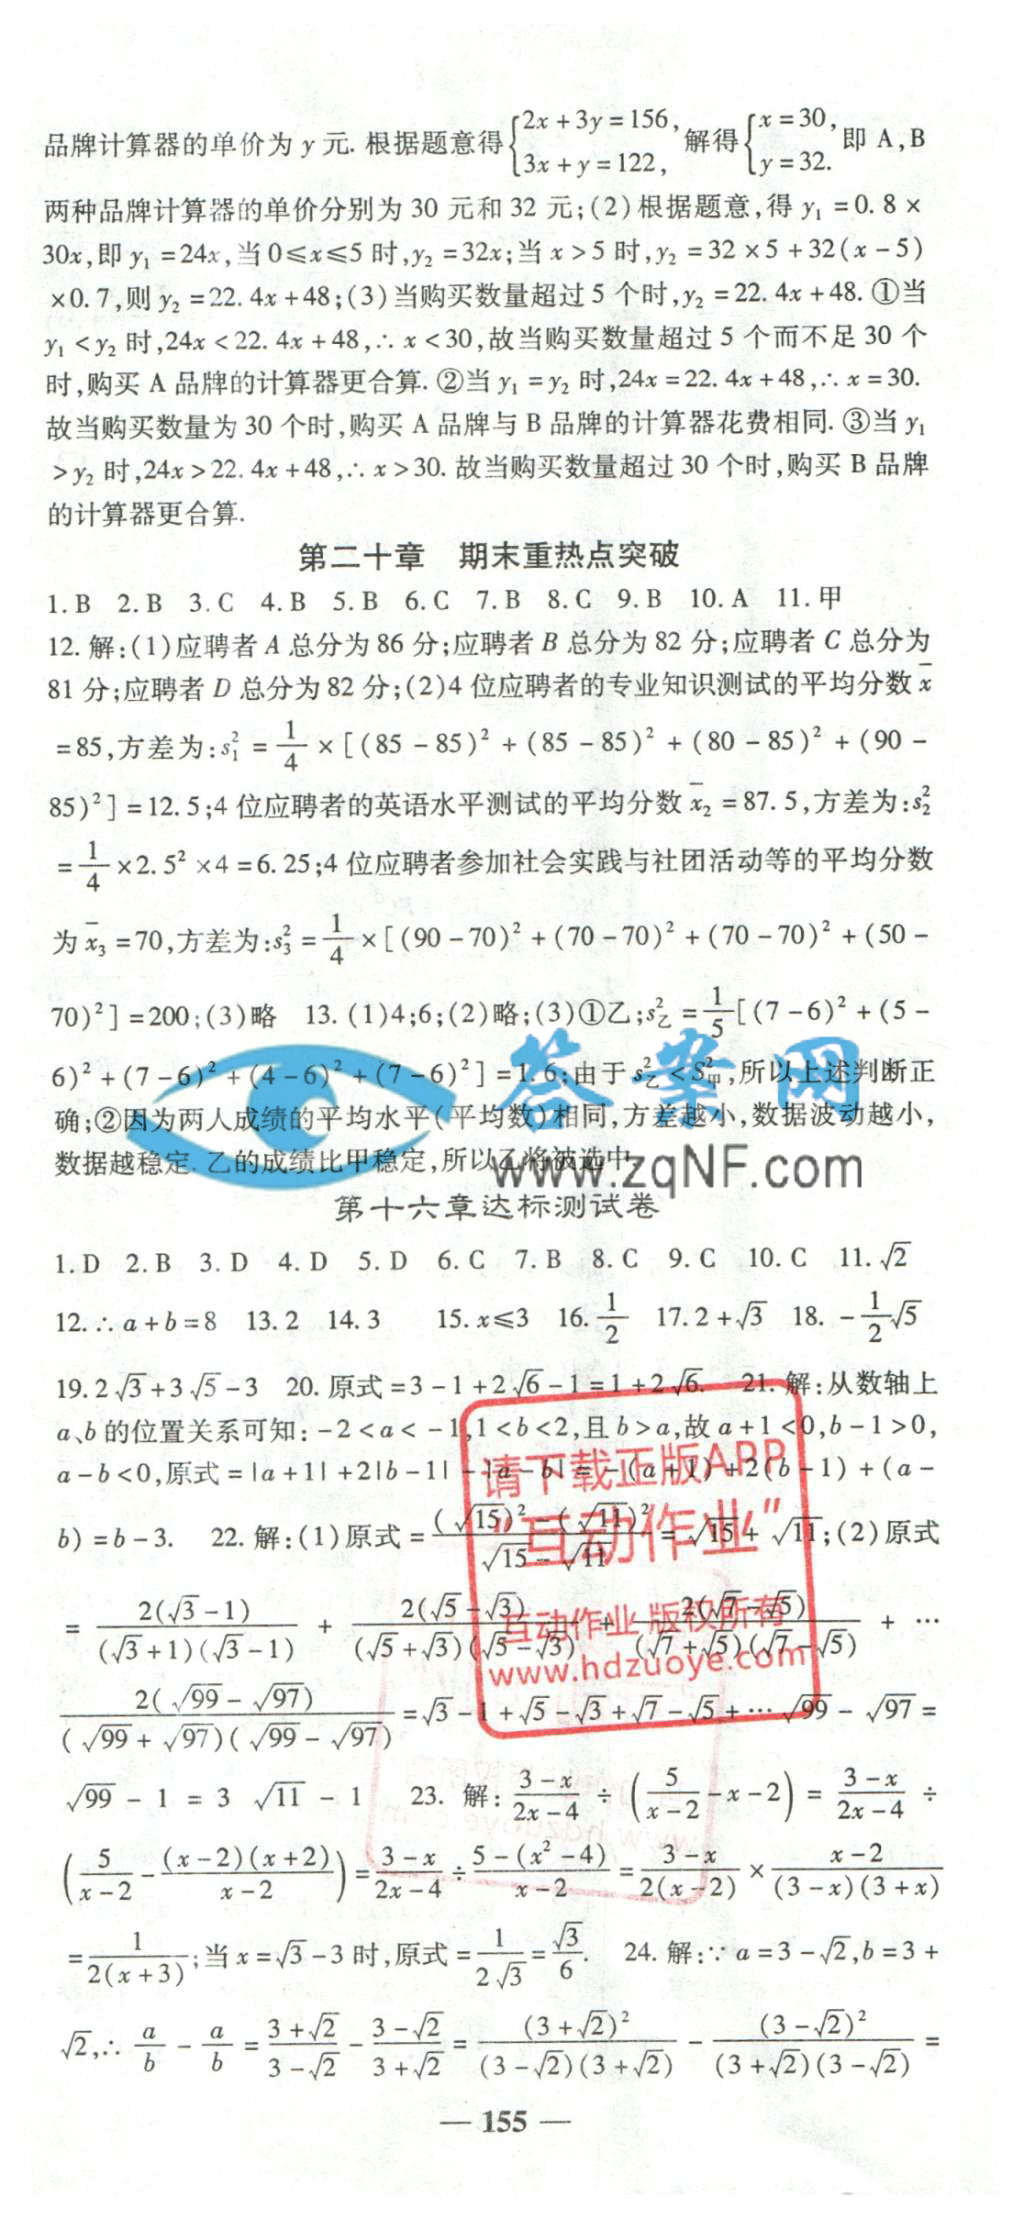 品牌计算器的单价为 y 元. 根据题意得{2x+3y=156, 3x+y=122, 解得{x=30, y=32. 即 A,B
两种品牌计算器的单价分别为 30 元和 32 元;(2)根据题意,得 y₁=0.8×
30x,即 y₁=24x,当 0≤x≤5 时,y₂=32x;当 x>5 时,y₂=32×5+32(x-5)
×0.7,则 y₂=22.4x+48;(3)当购买数量超过 5 个时,y₂=22.4x+48.①当
y₁<y₂ 时,24x<22.4x+48,∴x<30,故当购买数量超过 5 个而不足 30 个
时,购买 A 品牌的计算器更合算.②当 y₁=y₂ 时,24x=22.4x+48,∴x=30.
故当购买数量为 30 个时,购买 A 品牌与 B 品牌的计算器花费相同.③当 y₁
>y₂ 时,24x>22.4x+48,∴x>30. 故当购买数量超过 30 个时,购买 B 品牌
的计算器更合算.
第二十章 期末重热点突破
1.B 2.B 3.C 4.B 5.B 6.C 7.B 8.C 9.B 10.A 11.甲
12.解:(1)应聘者 A 总分为 86 分;应聘者 B 总分为 82 分;应聘者 C 总分为
81 分;应聘者 D 总分为 82 分;(2)4 位应聘者的专业知识测试的平均分数 x̄
=85,方差为:s₁²=1/4×[(85-85)²+(85-85)²+(80-85)²+(90-
85)²]=12.5;4 位应聘者的英语水平测试的平均分数 x̄₂=87.5,方差为:s₂²
=1/4×2.5²×4=6.25;4 位应聘者参加社会实践与社团活动等的平均分数
为 x̄₃=70,方差为:s₃²=1/4×[(90-70)²+(70-70)²+(70-70)²+(50-
70)²]=200;(3)略 13.(1)4;6;(2)略;(3)①乙;s²乙=1/5[(7-6)²+(5-
6)²+(7-6)²+(4-6)²+(7-6)²]=1.6;由于 s²乙<S²甲,所以上述判断正
确;②因为两人成绩的平均水平(平均数)相同,方差越小,数据波动越小,
数据越稳定.乙的成绩比甲稳定,所以乙将被选中.
答案网
www.zqNF.com
第十六章达标测试卷
1.D 2.B 3.D 4.D 5.D 6.C 7.B 8.C 9.C 10.C 11.√2
12.∴a+b=8 13.2 14.3 15.x≤3 16.1/2 17.2+√3 18.-1/2√5
19.2√3+3√5-3 20.原式=3-1+2√6-1=1+2√6. 21.解:从数轴上
a、b 的位置关系可知:-2<a<-1,1<b<2,且 b>a,故 a+1<0,b-1>0,
a-b<0,原式=|a+1|+2|b-1|-|a-b|=-(a+1)+2(b-1)+(a-
b)=b-3. 22.解:(1)原式=((√15)²-(√11)²)/(√15-√11)=√15+√11;(2)原式
=2(√3-1)/((√3+1)(√3-1))+2(√5-√3)/((√5+√3)(√5-√3))+2(√7-√5)/((√7+√5)(√7-√5))+…
2(√99-√97)/((√99+√97)(√99-√97))=√3-1+√5-√3+√7-√5+…√99-√97=
√99-1=3√11-1 23.解:(3-x)/(2x-4)÷(5/(x-2)-x-2)=(3-x)/(2x-4)÷
(5/(x-2)-(x-2)(x+2)/(x-2))=(3-x)/(2x-4)÷(5-(x²-4))/(x-2)=(3-x)/(2(x-2))×(x-2)/((3-x)(3+x))
=1/(2(x+3));当 x=√3-3 时,原式=1/(2√3)=√3/6. 24.解:∵a=3-√2,b=3+
√2,∴a/b-a/b=(3+√2)/(3-√2)-(3-√2)/(3+√2)=(3+√2)²/((3-√2)(3+√2))-(3-√2)²/((3+√2)(3-√2))=
请下载正版APP
"互动作业"
互动作业 版权所有
www.hdzuoye.com
— 155 —